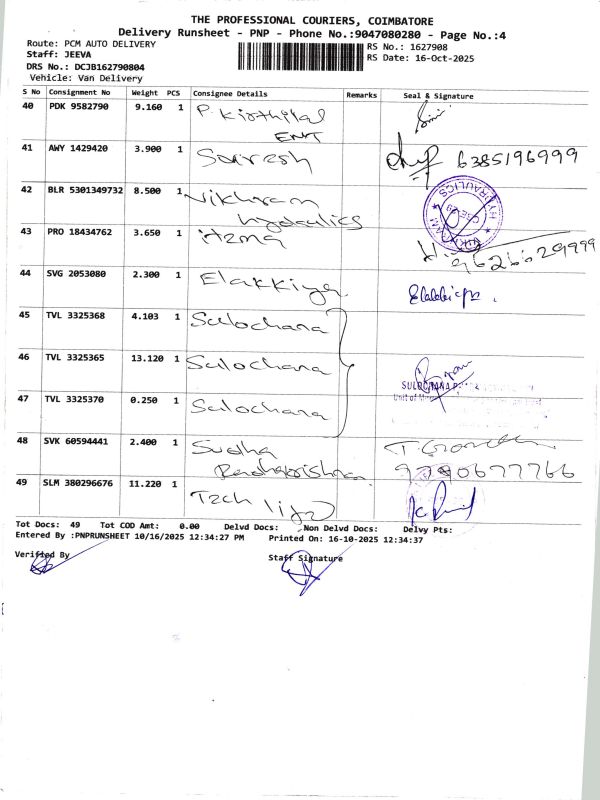 THE PROFESSIONAL COURIERS, COIMBATORE
Delivery Runsheet - PNP - Phone No.:9047080280 - Page No.:4
Route: PCM AUTO DELIVERY
RS No.: 1627908
Staff: JEEVA
RS Date: 16-Oct-2025
DRS No.: DCJB162790804
Vehicle: Van Delivery
S No Consignment No Weight PCS Consignee Details Remarks Seal & Signature
40 PDK 9582790 9.160 1 P. Kirthilal
ENT
41 AWY 1429420 3.900 1 Suresh 6385196999
42 BLR 5301349732 8.500 1 Vikhram
hydraulics
43 PRO 18434762 3.650 1 9626629999
44 SVG 2053080 2.300 1 Elakkiya
45 TVL 3325368 4.103 1 Sulochana
46 TVL 3325365 13.120 1 Sulochana
SULOCHANA
47 TVL 3325370 0.250 1 Sulochana
Unit of
48 SVK 60594441 2.400 1 Sudha
Radhakrishna 9790677766
49 SLM 380296676 11.220 1 Tech
Tot Docs: 49 Tot COD Amt: 0.00 Delvd Docs: Non Delvd Docs: Delvy Pts:
Entered By :PNPRUNSHEET 10/16/2025 12:34:27 PM Printed On: 16-10-2025 12:34:37
Verified By Staff Signature